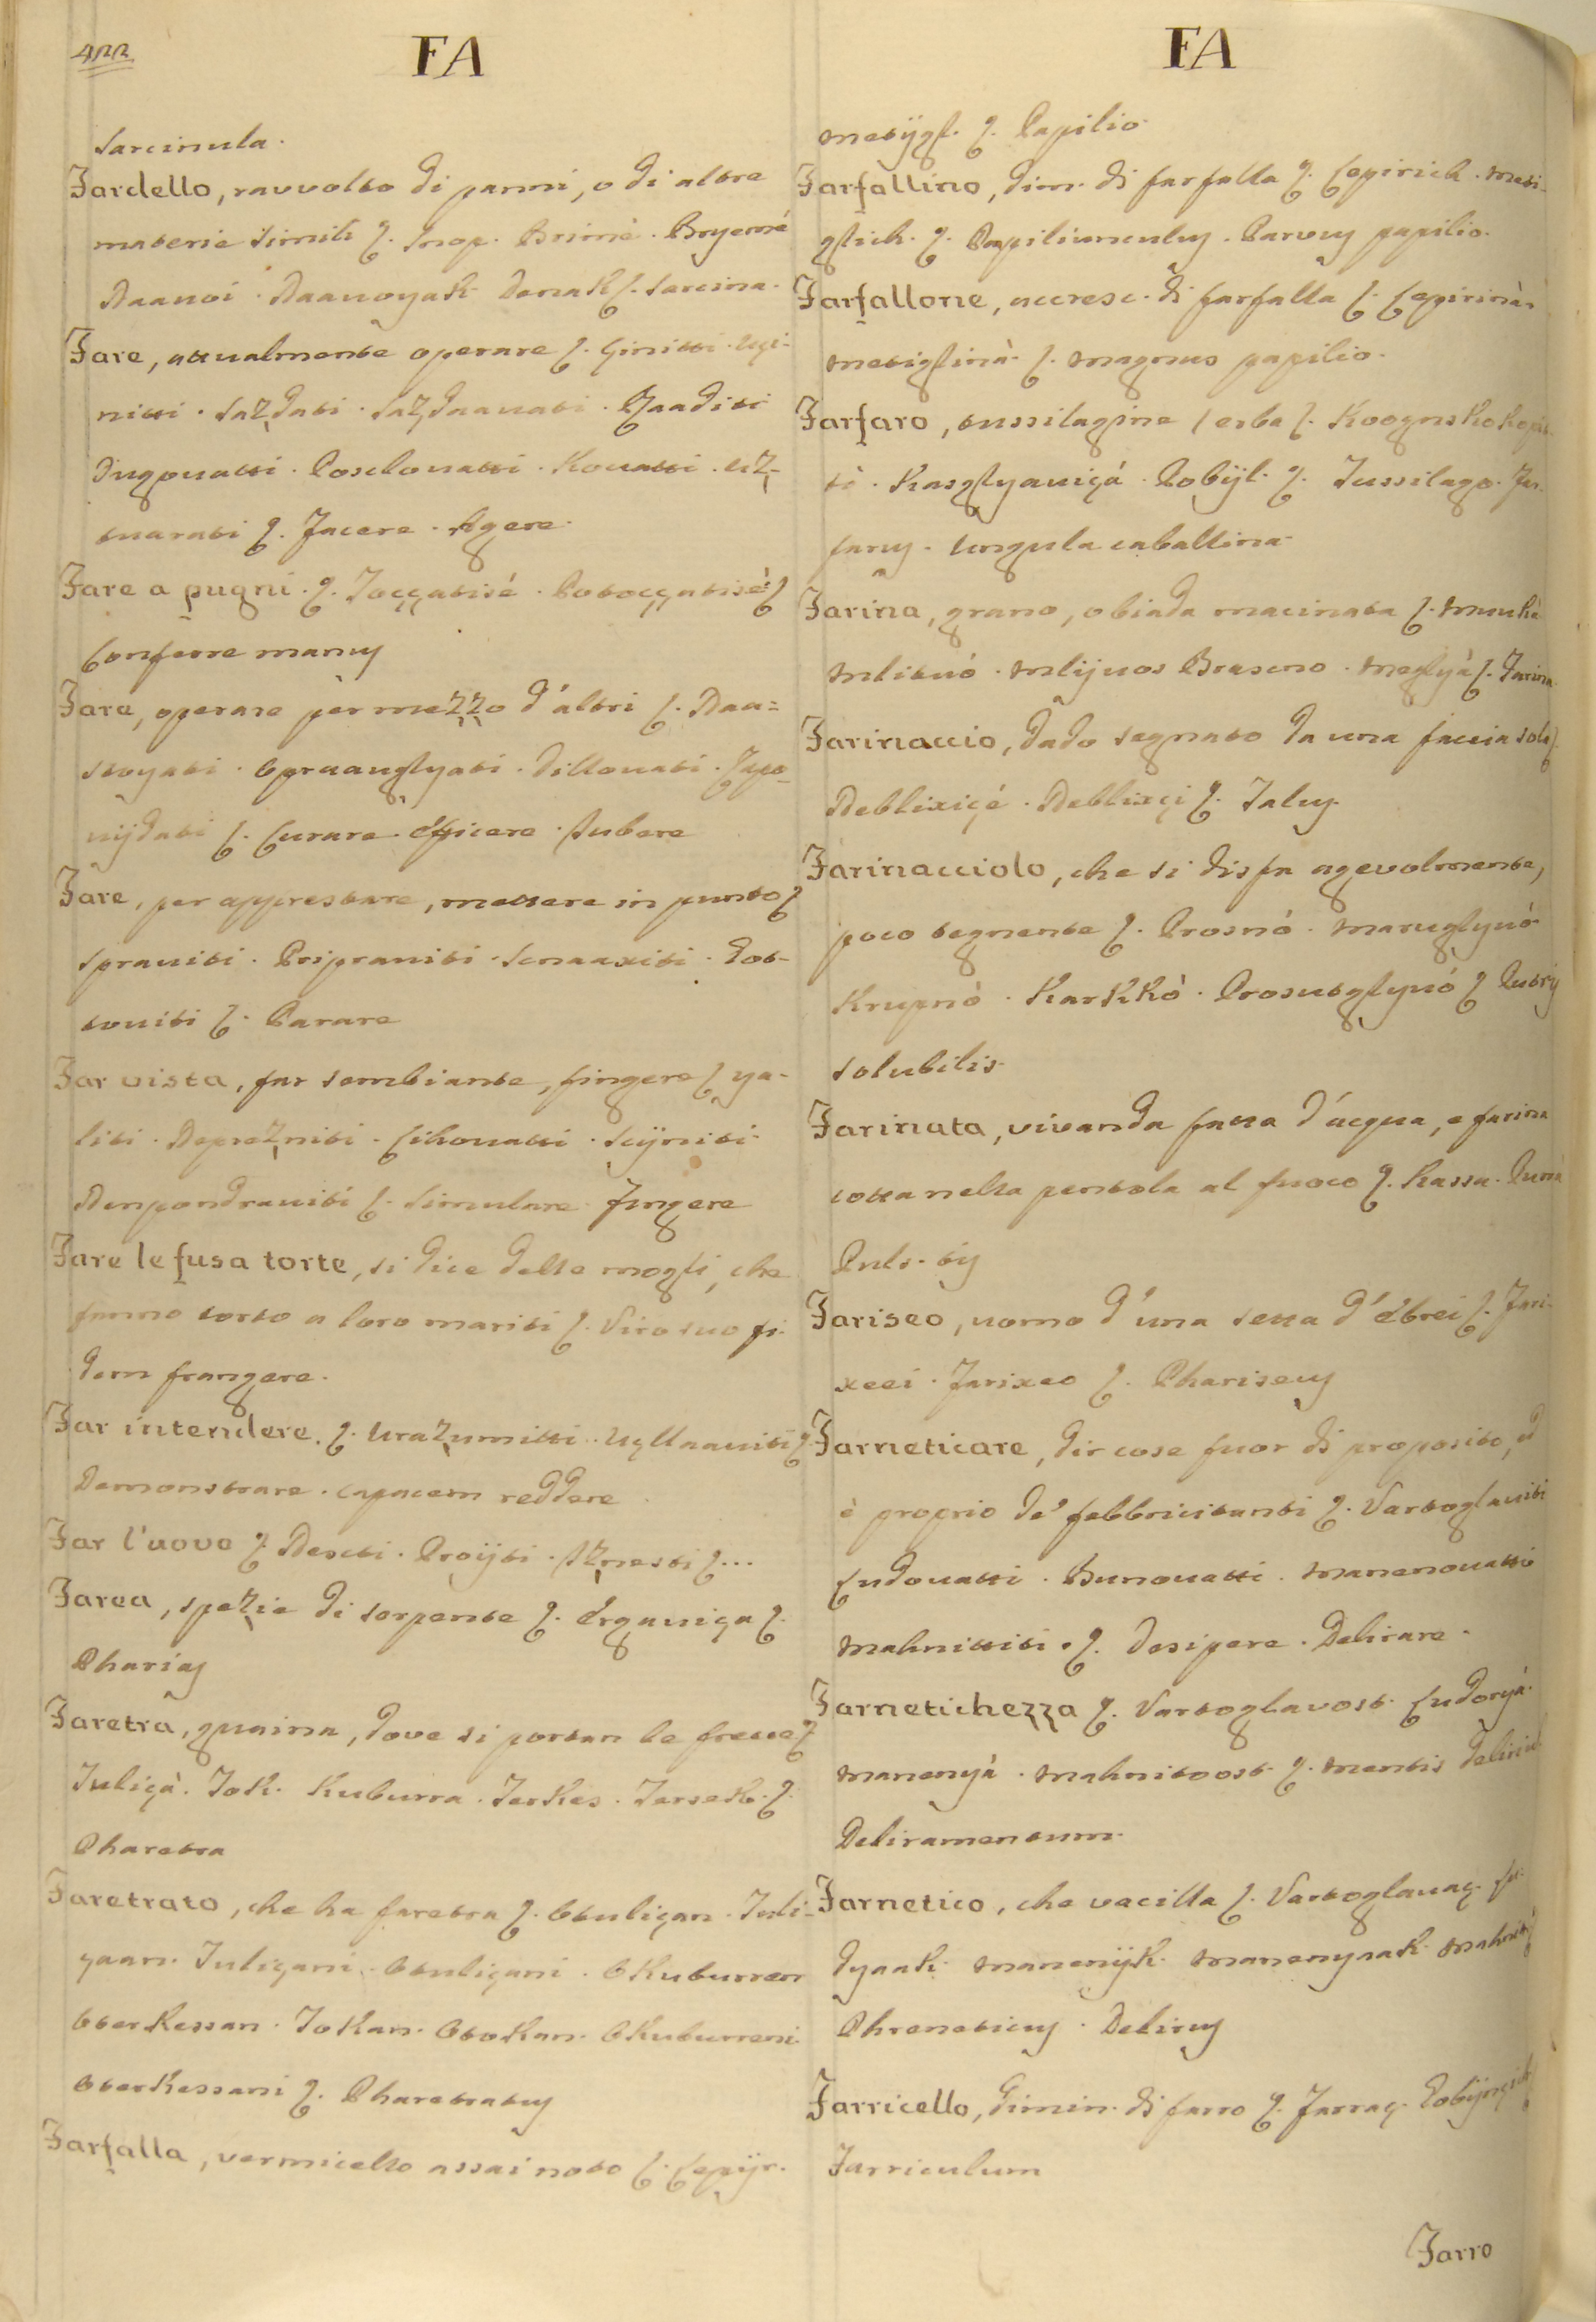 422
FA
sarcinula.
Fardello, ravvolto di panni, o di altre
materie simili ʃ. Snop. Brimè. Bryemé
Daanoi. Daanoyak Denak ʃ. Sarcina.
Fare, attualmente operare ʃ. Ginitti. Uçi-
nitti. Sazdati. Sazdaauati.
Dugouatti. Posclouatti. Kouatti. uz-
tuarati ʃ. Facere. Agere.
Fare a pugni. ʃ. Toççatisé. Potoççatisè ʃ
Conferre manus
Fare, operare per mezzo d'altri ʃ. Daa-
stoyati. Opruauglyati. Dillouati. Zapo-
uijdati ʃ. Curare. Efficere. Iubere
Fare, per apprestare, mettere in punto ʃ
Sprauiti. Pripraviti. Snaaxiti. Got-
touiti ʃ. Parare
Far vista, far sembiante, fingere ʃ ya-
liti. Deprezniti. Cihouatti. Sciniti.
ʃ. Simulare. Fingere
Fare le fusa torte, si dice delle mogli, che
fanno torto a loro mariti ʃ. Viro suo fi-
dem frangere.
Far intendere. ʃ. Urazumitti. Uçllaauiti ʃ
Demonstrare. capacem reddere
Far l'uovo ʃ Nesti. Proijti. Iznesti ʃ...
Farea, spezie di serpente ʃ. ʃ.
Pharias
Faretra, guaina, dove si portan le frecce ʃ
Tuliçà. Tok. Kuburra. Terkes. Tarsek. ʃ.
Pharetra
Faretrato, che ha faretra ʃ. Otuliçan. Tuli-
çaan. Tuliçani. Otuliçani. Okuburren
Oterkessan. Tokan. Otokan. Okuburreni.
Oterkessani ʃ. Pharetratus
Farfalla, vermicello assai noto ʃ. Lepijr.
FA
metijgl. ʃ. Papilio.
Farfallino, dim. di farfalla ʃ. Lepirich. Meti-
glich. ʃ. Papiliunculus. Parvus papilio.
Farfallone, accresc. di farfalla ʃ. Lepirinà.
Metiglinà. ʃ. Magnus papilio.
Farfaro, tussilagine / erba ʃ. Koognskokopit-
tò. Kasglyauiçá. Pobijl. ʃ. Tussilago. Far-
farus. Ungula caballina.
Farina, grano, o biada macinata ʃ. Mukà
Mlitvó. Mlijvos Brascno. Meglyà ʃ. Farina.
Farinaccio, dado segnato da una faccia sola ʃ.
Deblixiçé. Deblixçi ʃ. Talus.
Farinacciolo, che si disfa agevolmente,
poco tegnente ʃ. Prosnó. Maruglyuó.
Krupnò. Karkkò. Prosutglyuó ʃ Putris
solubilis.
Farinata, vivanda fatta d'acqua, e farina
cotta nella pentola al fuoco ʃ. Kassa. Pura
Puls. tis
Fariseo, uomo d'una setta d'Ebrei ʃ. Fari-
xeei. Farixeo ʃ. Phariseus
Farneticare, dir cose fuor di proposito, ed
è proprio de' febbricitanti ʃ. Vartoglauiti
Ludouatti. Bunouatti. Manenouatti
Mahnittiti. ʃ. Desipere. Delirare.
Farnetichezza ʃ. Vartoglavost. Ludoryá.
Manenyá. Mahnitoost. ʃ. Mentis Deliriu
Deliramentum.
Farnetico, che vacilla ʃ. Vartoglauaç. Lu-
dyaak. Manenijk. Manenyaak.
Phreneticus. Delirus
Farricello, dimin. di farro ʃ. Farraç.
Farriculum
Farro